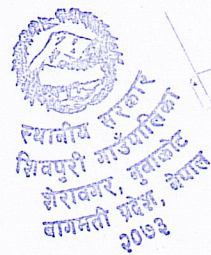 स्थानीय सरकार
शिवपुरी गाउँपालिका
शेराबगर, नुवाकोट
बागमती प्रदेश, नेपाल
२०७३